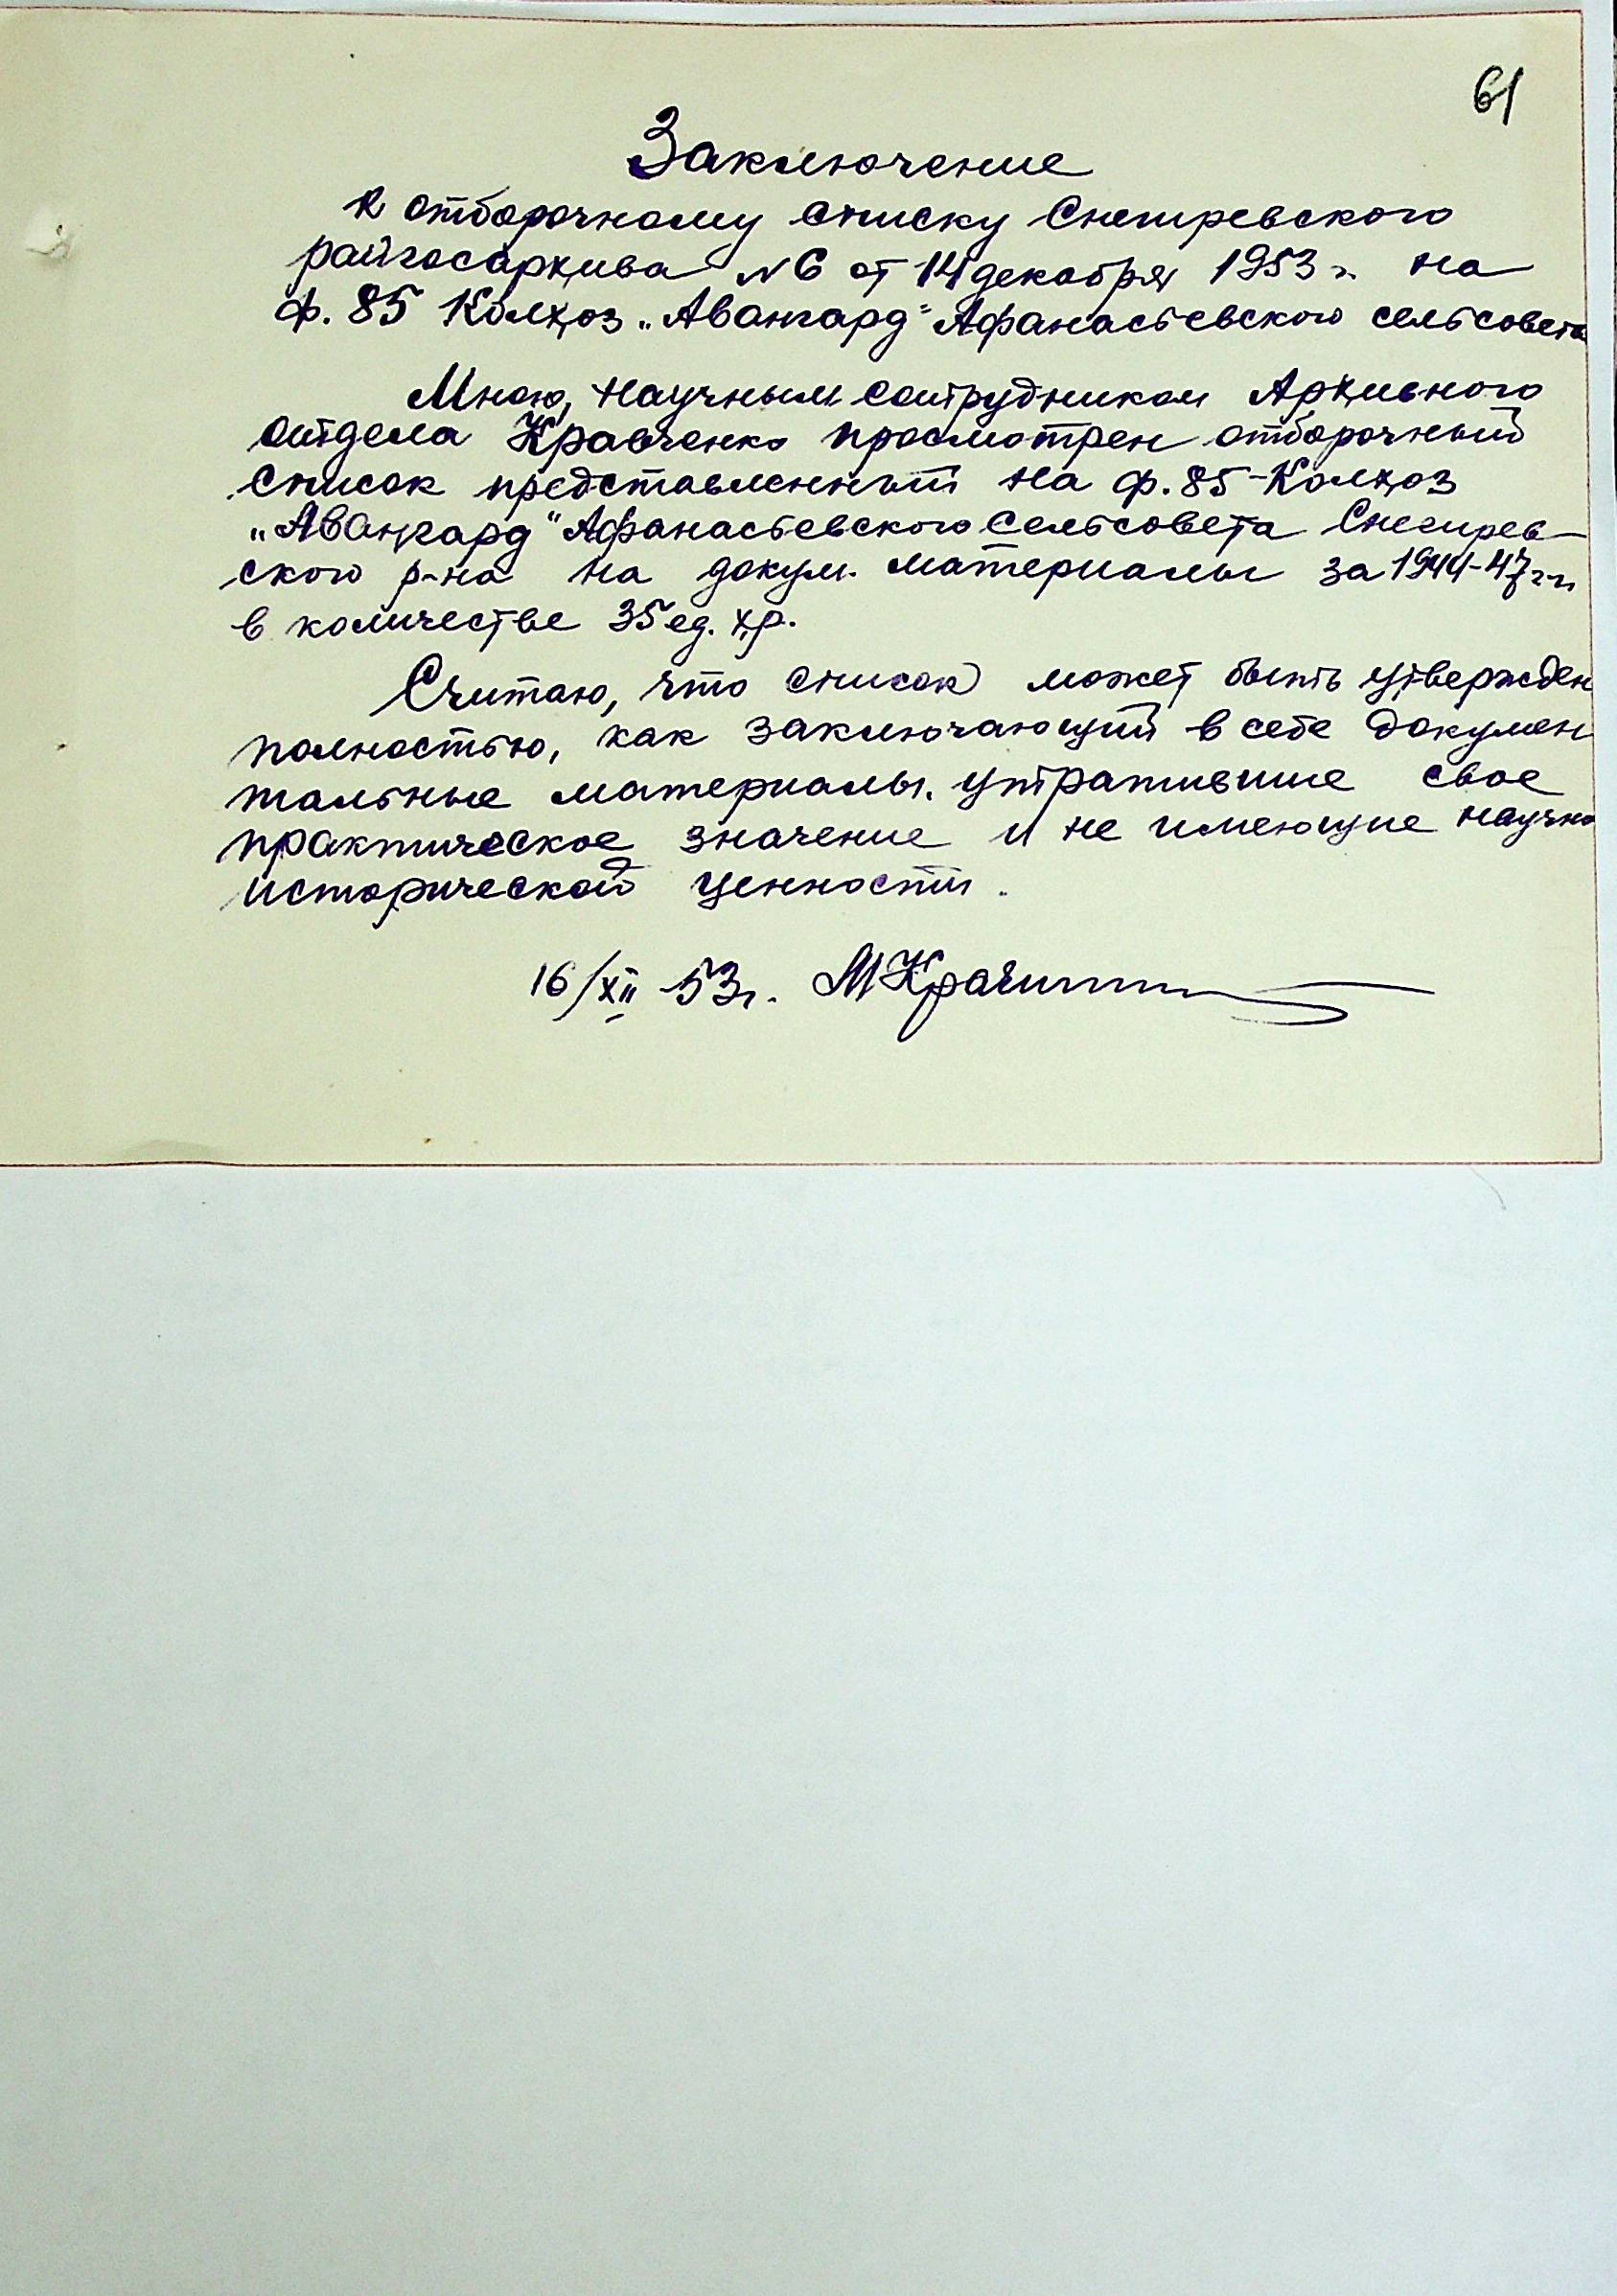 61
Заключение
к отборочному списку Снегиревского
райгосархива N 6 от 14 декабря 1953 г. на
ф. 85 Колхоз „Авангард" Афанасьевского сельсовета
Мною, научным сотрудником Архивного
отдела Кравченко просмотрен отборочный
список представленный на ф. 85 - Колхоз
„Авангард" Афанасьевского сельсовета Снегирев-
ского р-на на докум. материалы за 1944-47 г.г.
в количестве 35 ед. хр.
Считаю, что список может быть утвержден
полностью, как заключающий в себе докумен
тальные материалы. утратившие свое
практическое значение и не имеющие научно
исторической ценности.
16/XII 53 г.